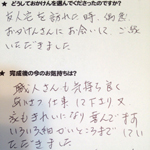 ★ どうしておかけんを選んでくださったのですか？
友人宅を訪れた時、偶然
おかけんさんに お会いして ご縁
いただきました
★ 完成後の今のお気持ちは？
職人さんも気持ち良く
仕事に下さり 又
家もきれいになり 喜んで ます
いろいろ細かいところまで して
いただきました